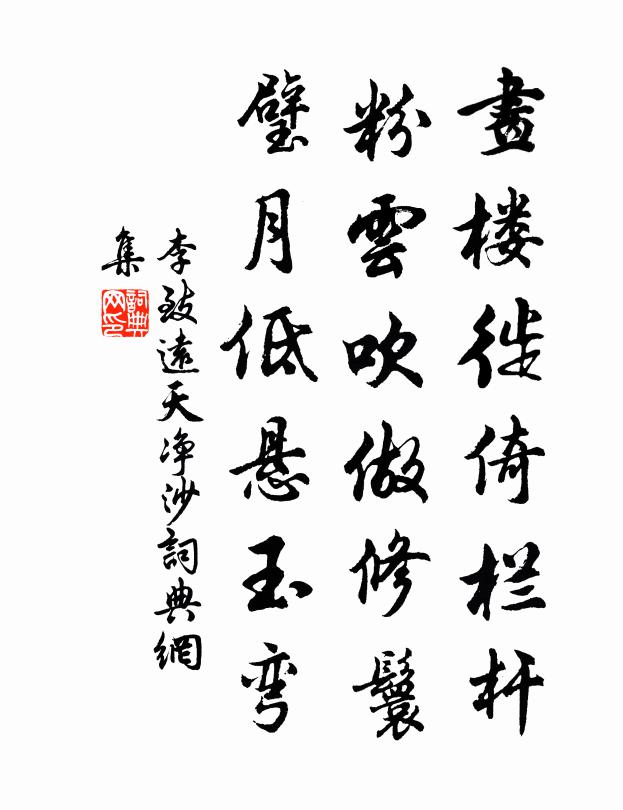 畫楼徙倚栏杆
粉雲吹做修鬟
璧月低悬玉弯
李致遠天净沙詞典網
集
詞典
网印